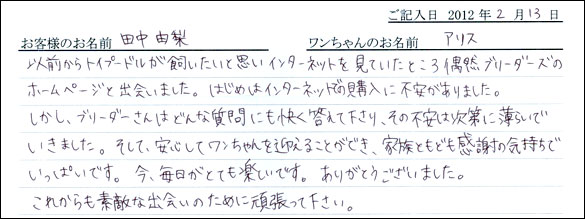 ご記入日 2012 年 2 月 13 日
お客様のお名前 田中 由梨 ワンちゃんのお名前 アリス
以前からトイプードルが飼いたいと思いインターネットを見ていたところ偶然ブリーダーズの
ホームページと出会いました。はじめはインターネットでの購入に不安がありました。
しかし、ブリーダーさんはどんな質問にも快く答えて下さり、その不安は次第に薄らいで
いきました。そして、安心してワンちゃんを迎えることができ、家族ともども感謝の気持ちで
いっぱいです。今、毎日がとても楽しいです。ありがとうございました。
これからも素敵な出会いのために頑張って下さい。